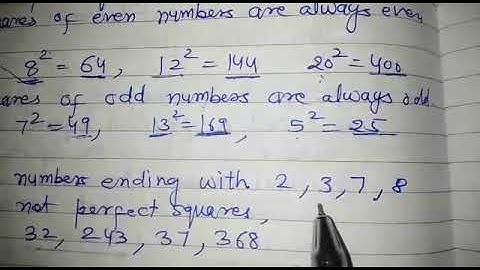 ares of even numbers are always even
8² = 64, 12² = 144 20² = 400
ares of odd numbers are always odd
7² = 49, 13² = 169, 5² = 25
numbers ending with 2, 3, 7, 8
not perfect squares,
32, 243, 37, 368